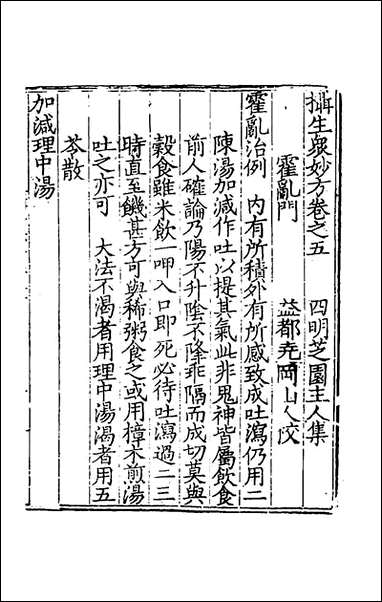 攝生眾妙方卷之五　四明芝園主人集
霍亂門　益都尭岡山人校
霍亂治例　內有所積外有所感致成吐瀉仍用二
陳湯加減作吐以提其氣此非鬼神皆屬飲食
前人確論乃陽不升陰不降乖隔而成切莫與
穀食雖米飲一呷入口即死必待吐瀉過二三
時直至饑甚方可與稀粥食之或用樟木煎湯
吐之亦可　大法不渴者用理中湯渴者用五
苓散
加減理中湯